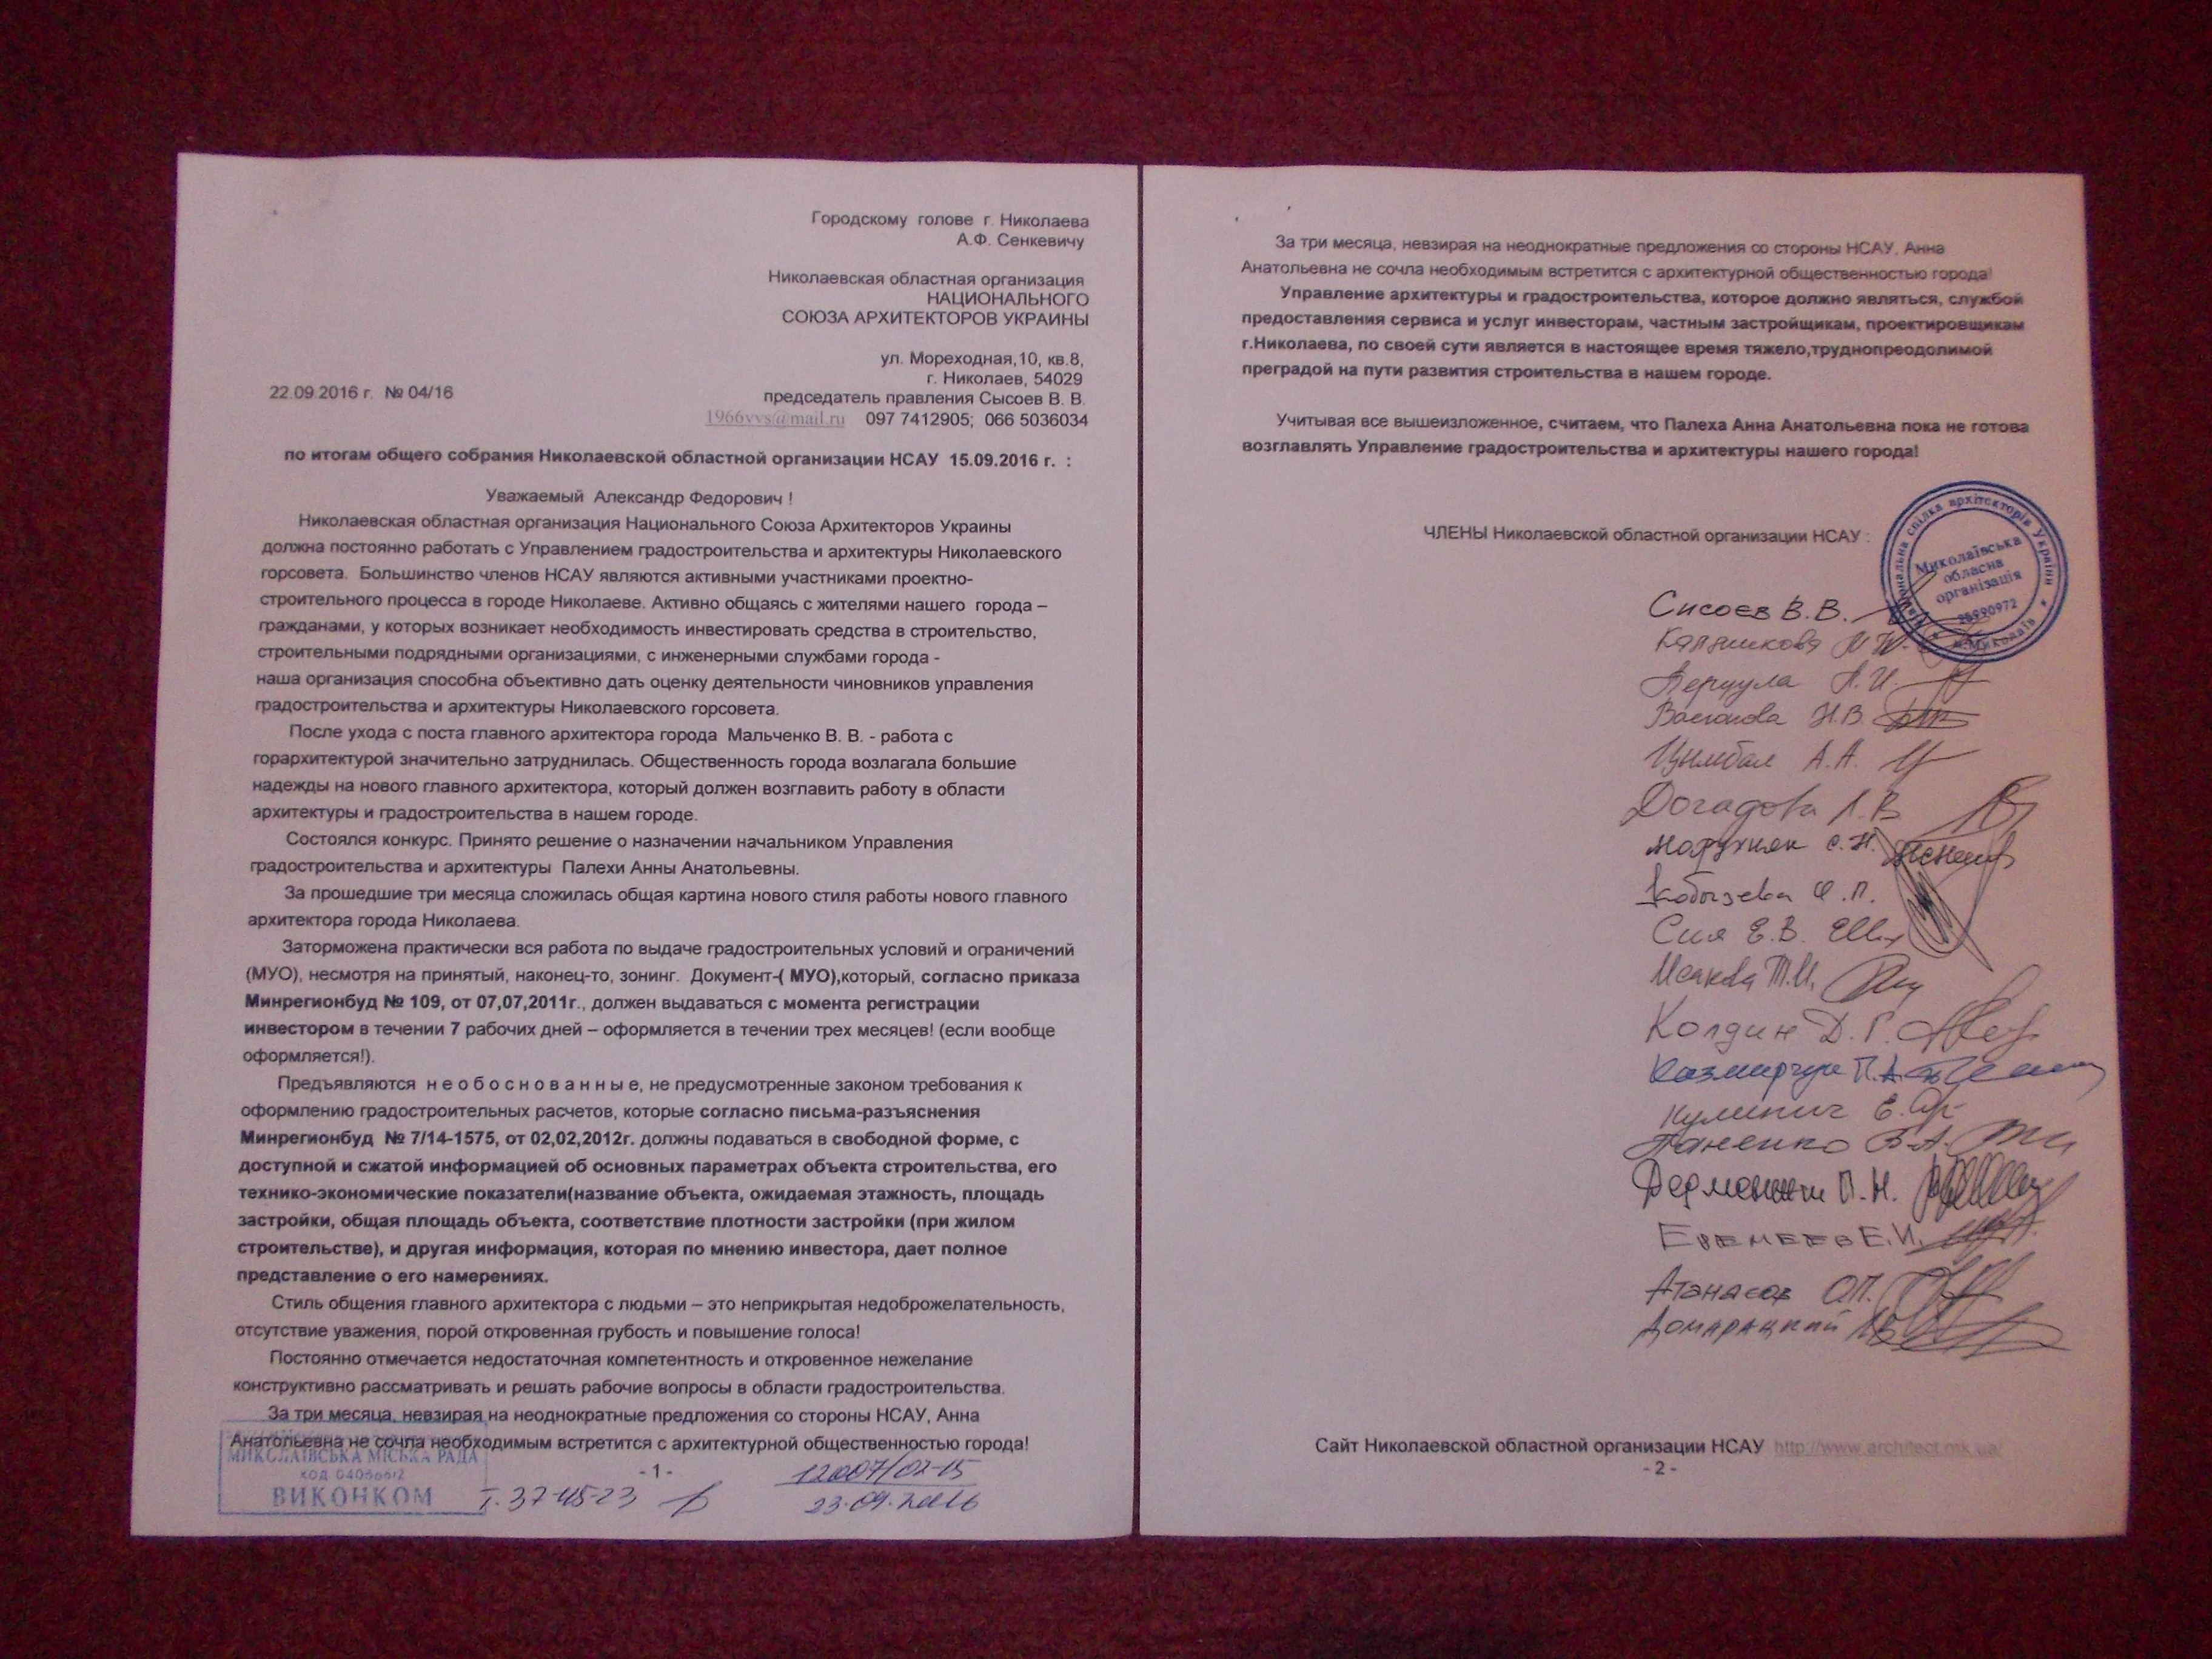 Городскому голове г. Николаева
А.Ф. Сенкевичу
Николаевская областная организация
НАЦИОНАЛЬНОГО
СОЮЗА АРХИТЕКТОРОВ УКРАИНЫ
ул. Мореходная,10, кв.8,
г. Николаев, 54029
22.09.2016 г. № 04/16
председатель правления Сысоев В. В.
1966vvs@mail.ru 097 7412905; 066 5036034
по итогам общего собрания Николаевской областной организации НСАУ 15.09.2016 г. :
Уважаемый Александр Федорович !
Николаевская областная организация Национального Союза Архитекторов Украины
должна постоянно работать с Управлением градостроительства и архитектуры Николаевского
горсовета. Большинство членов НСАУ являются активными участниками проектно-
строительного процесса в городе Николаеве. Активно общаясь с жителями нашего города –
гражданами, у которых возникает необходимость инвестировать средства в строительство,
строительными подрядными организациями, с инженерными службами города -
наша организация способна объективно дать оценку деятельности чиновников управления
градостроительства и архитектуры Николаевского горсовета.
После ухода с поста главного архитектора города Мальченко В. В. - работа с
горархитектурой значительно затруднилась. Общественность города возлагала большие
надежды на нового главного архитектора, который должен возглавить работу в области
архитектуры и градостроительства в нашем городе.
Состоялся конкурс. Принято решение о назначении начальником Управления
градостроительства и архитектуры Палехи Анны Анатольевны.
За прошедшие три месяца сложилась общая картина нового стиля работы нового главного
архитектора города Николаева.
Заторможена практически вся работа по выдаче градостроительных условий и ограничений
(МУО), несмотря на принятый, наконец-то, зонинг. Документ-( МУО),который, согласно приказа
Минрегионбуд № 109, от 07,07,2011г., должен выдаваться с момента регистрации
инвестором в течении 7 рабочих дней – оформляется в течении трех месяцев! (если вообще
оформляется!).
Предъявляются н е о б о с н о в а н н ы е, не предусмотренные законом требования к
оформлению градостроительных расчетов, которые согласно письма-разъяснения
Минрегионбуд № 7/14-1575, от 02,02,2012г. должны подаваться в свободной форме, с
доступной и сжатой информацией об основных параметрах объекта строительства, его
технико-экономические показатели(название объекта, ожидаемая этажность, площадь
застройки, общая площадь объекта, соответствие плотности застройки (при жилом
строительстве), и другая информация, которая по мнению инвестора, дает полное
представление о его намерениях.
Стиль общения главного архитектора с людьми – это неприкрытая недоброжелательность,
отсутствие уважения, порой откровенная грубость и повышение голоса!
Постоянно отмечается недостаточная компетентность и откровенное нежелание
конструктивно рассматривать и решать рабочие вопросы в области градостроительства.
За три месяца, невзирая на неоднократные предложения со стороны НСАУ, Анна
Анатольевна не сочла необходимым встретится с архитектурной общественностью города!
МИКОЛАЇВСЬКА МІСЬКА РАДА
код 04056612
ВИКОНКОМ
т. 37-45-23
- 1 -
12007/02-15
23.09.2016
За три месяца, невзирая на неоднократные предложения со стороны НСАУ, Анна
Анатольевна не сочла необходимым встретится с архитектурной общественностью города!
Управление архитектуры и градостроительства, которое должно являться, службой
предоставления сервиса и услуг инвесторам, частным застройщикам, проектировщикам
г.Николаева, по своей сути является в настоящее время тяжело,труднопреодолимой
преградой на пути развития строительства в нашем городе.
Учитывая все вышеизложенное, считаем, что Палеха Анна Анатольевна пока не готова
возглавлять Управление градостроительства и архитектуры нашего города!
ЧЛЕНЫ Николаевской областной организации НСАУ :
Національна спілка архітекторів України
Миколаївська
обласна
організація
25990972
м.Миколаїв
Сисоев В.В.
Калашникова
А.И.
Н.В.
Цымбал А.А.
Догадова Л.В
С.Н.
Кобызева Ф.П.
Сия Е.В.
Исакова Т.И.
Колдин Д.Г.
Казмирчук П.А.
Кулинич Е.
Паненко В.А.
П.Н.
Еремеев Е.И.
Атанасов О.П.
Домарацкий
Сайт Николаевской областной организации НСАУ http://www.architect.mk.ua/
- 2 -